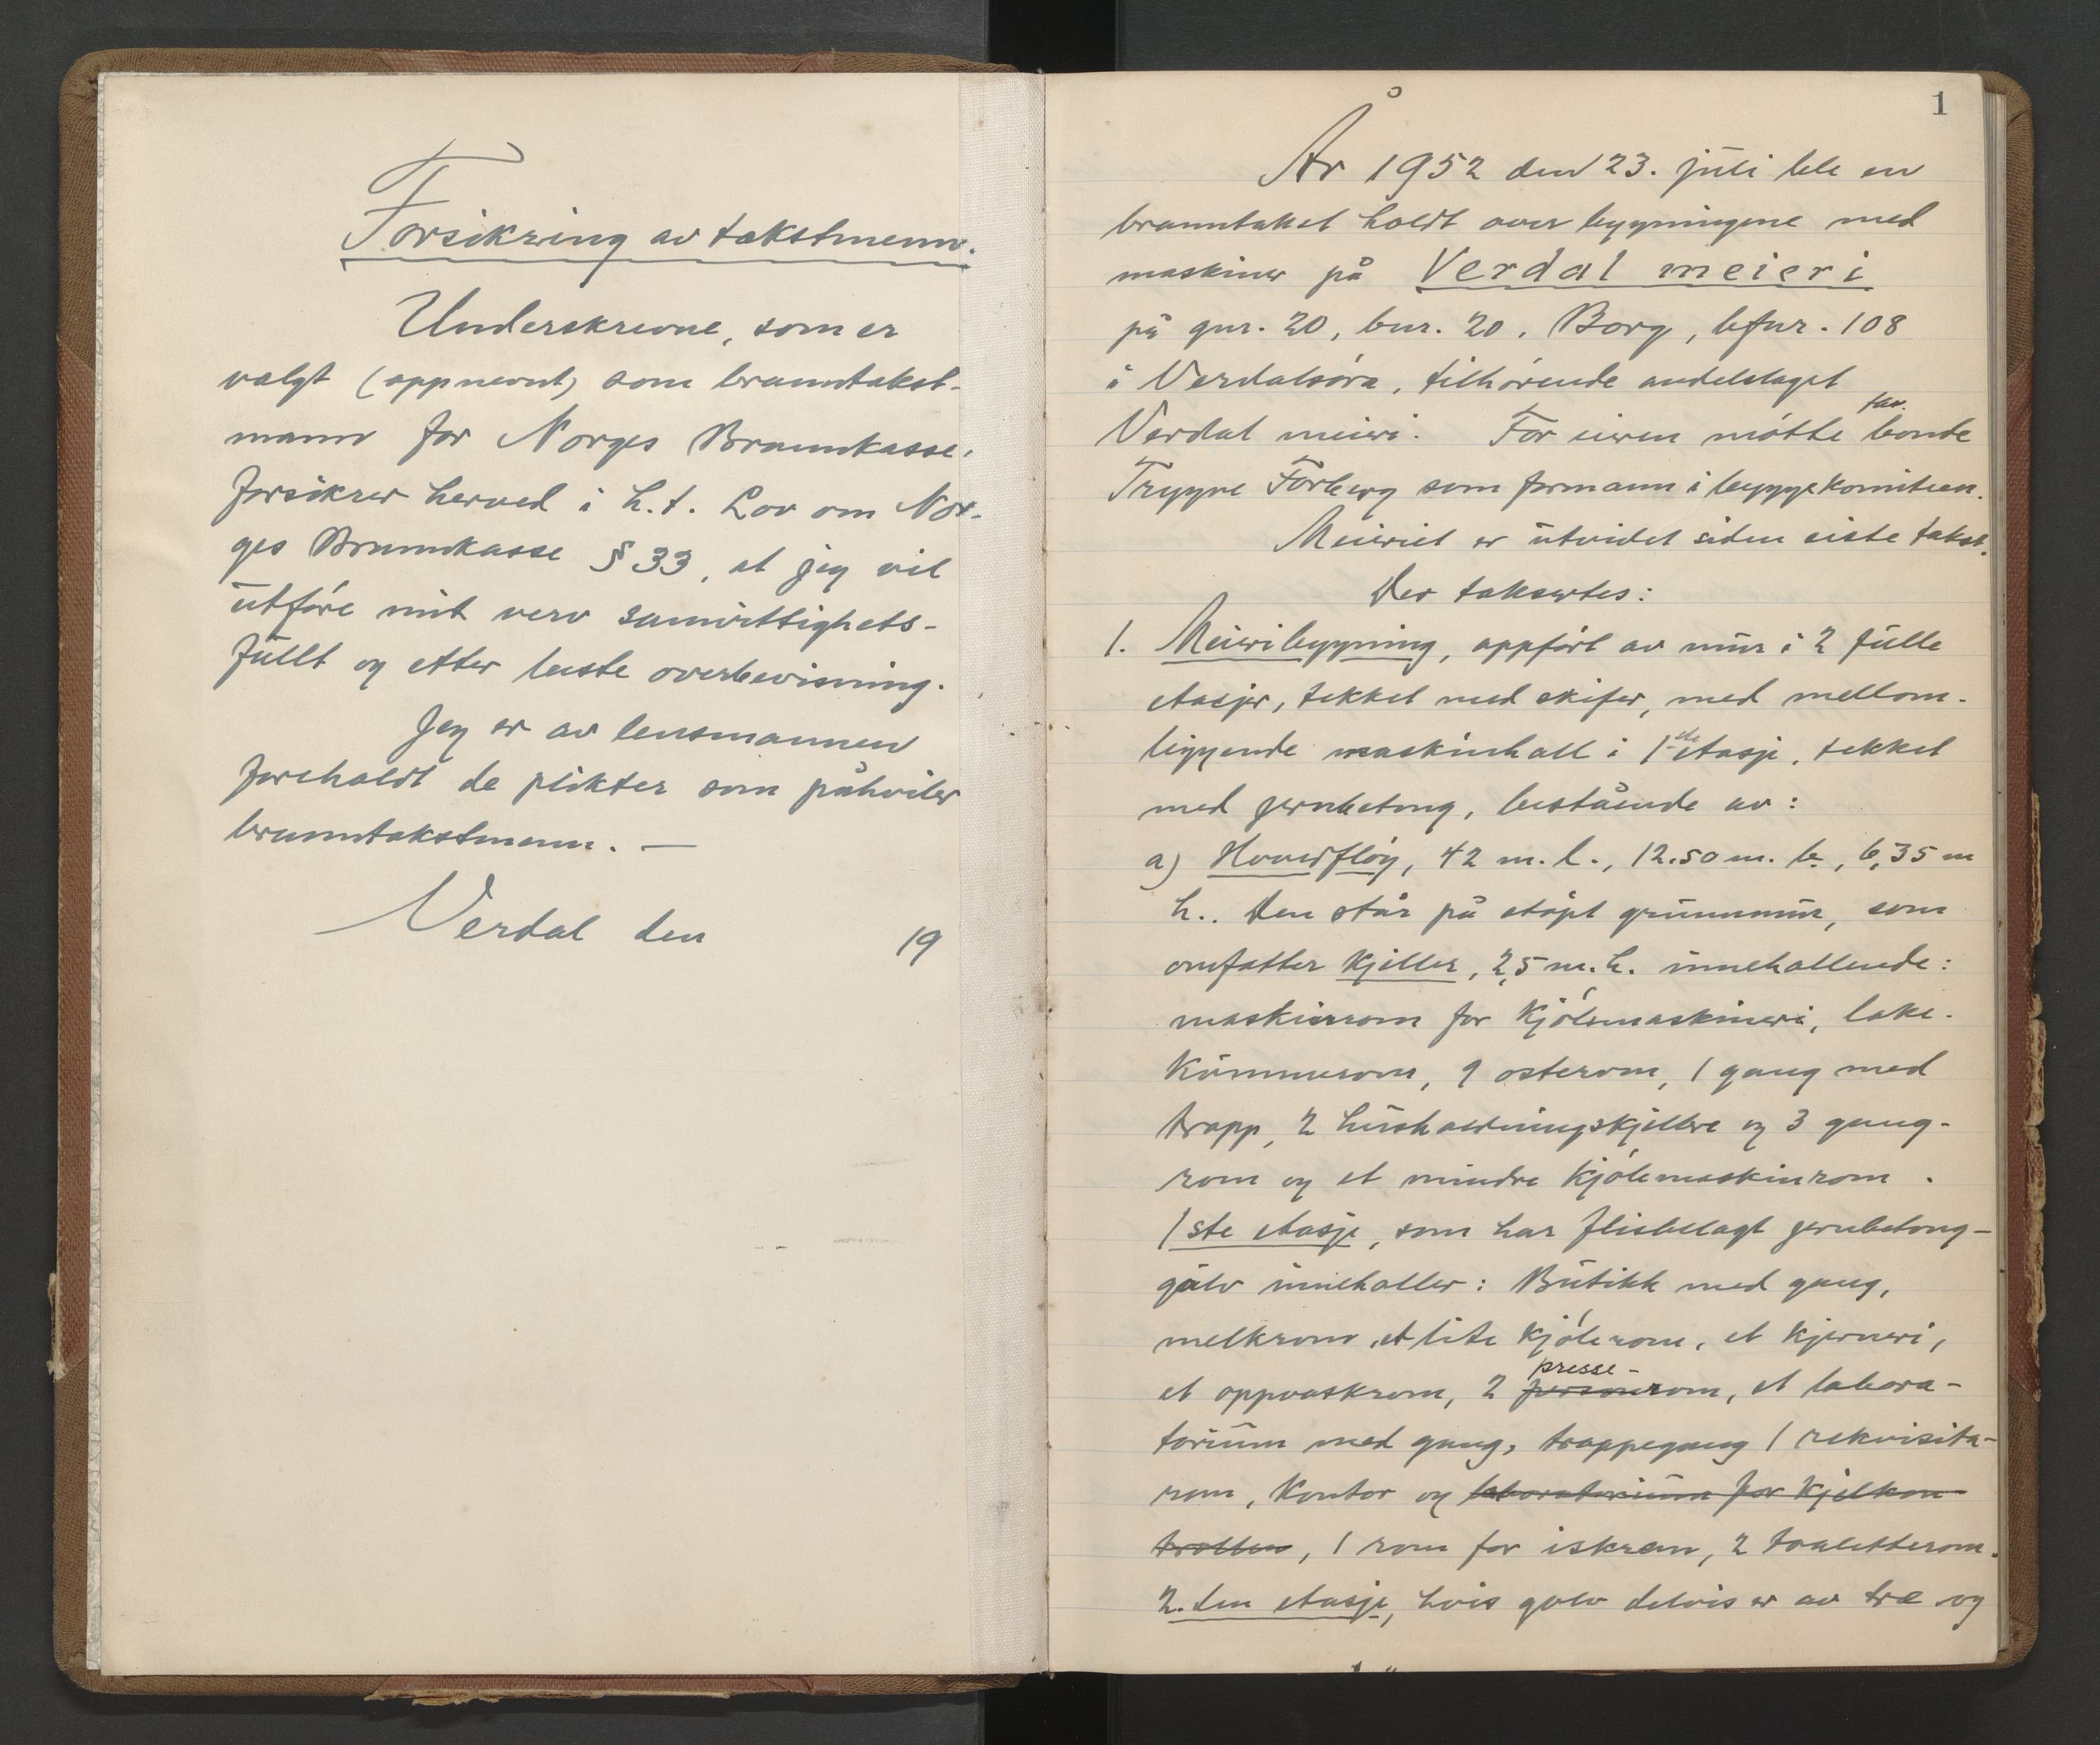 Forsikring av takstmenn.
Underskrevne, som er
valgt (oppnevnt) som branntakst-
mann for Norges Brannkasse,
forsikrer herved i h.t. Lov om Nor-
ges Brannkasse § 33, at jeg vil
utføre mit verv samvittighets-
fullt og etter beste overbevisning.
Jeg er av lensmannen
foreholdt de plikter som påhviler
branntakstmenn. —
Verdal den 19
1
År 1952 den 23. juli ble en
branntakst holdt over bygningene med
maskiner på Verdal meieri
på gnr. 20, bnr. 20, Borg, bfnr. 108
i Verdalsøra, tilhørende andelslaget
Verdal meieri. For eieren møtte fav. bonde
Trygve Forberg som formann i byggekomiteen.
Meieriet er utvidet siden siste takst.
Der taksertes:
1. Meieribygning, oppført av mur i 2 fulle
etasjer, tekket med skifer, med mellom-
liggende maskinhall i 1ste etasje, tekket
med jernbetong, bestående av:
a) Hovedfløy, 42 m. l., 12.50 m. b., 6,35 m
h.. Den står på støpt grunnmur, som
omfatter kjeller, 2,5 m. h. innehallende:
maskinrom for kjølemaskineri, lake-
kummerom, 9 osterom, 1 gang med
trapp, 2 husholdningskjellere og 3 gang-
rom og et mindre kjølemaskinrom.
1ste etasje, som har flisbelagt jernbetong-
gulv innehaller: Butikk med gang,
melkrom, et lite kjølerom, et kjerneri,
et oppvaskrom, 2 presse-rom, et labora-
torium med gang, trappegang 1 rekvisita-
rom, kontor og laboratorium for kjelkon-
trollen, 1 rom for iskrem, 2 toaletterom.
2. den etasje, hvis golv delvis er av tre og